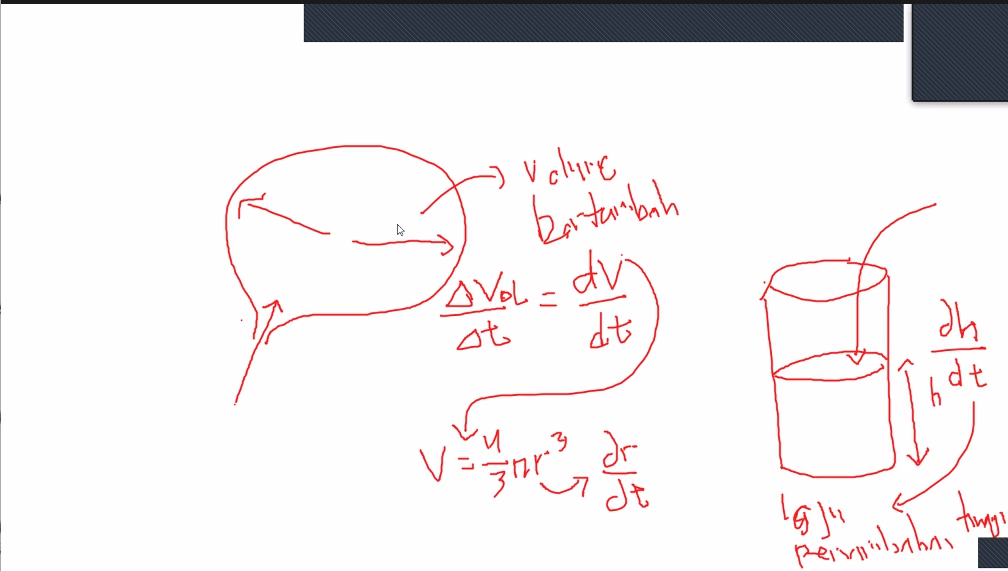 Volume
bertambah
ΔVol/Δt = dV/dt
V = 4/3 πr³ dr/dt
dh/dt
h
laju
perubahan tinggi